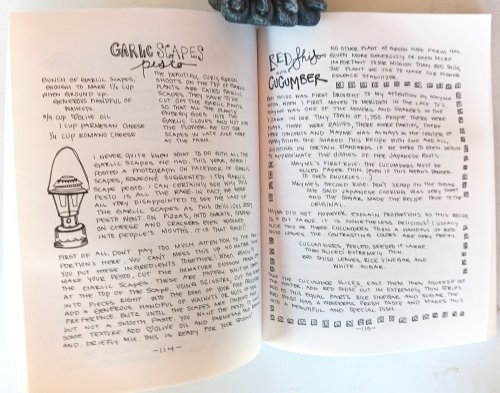 GARLIC SCAPES
pesto
BUNCH OF GARLIC SCAPES,
ENOUGH TO MAKE 1½ CUP
WHEN GROUND UP.
GENEROUS HANDFUL OF
WALNUTS.
3/4 CUP OLIVE OIL
1 CUP PARMESAN CHEESE
1/4 CUP ROMANO CHEESE
THE BEAUTIFUL CURLY GREEN
SHOOTS ON THE TOP OF GARLIC
PLANTS ARE CALLED GARLIC
SCAPES. THEY HAVE TO BE
CUT OFF THE GARLIC PLANTS
SO THAT ALL THE PLANT'S
ENERGY GOES INTO THE
GARLIC CLOVES AND NOT
THE FLOWER. WE CUT OUR
SCAPES IN LATE JUNE
AT THE FARM.
I NEVER QUITE KNEW WHAT TO DO WITH ALL THE
GARLIC SCAPES WE HAD. THIS YEAR, WHEN I
POSTED A PHOTOGRAPH ON FACEBOOK OF GARLIC
SCAPES, SOMEONE SUGGESTED I TRY GARLIC
SCAPE PESTO. I CAN CERTAINLY SEE WHY THIS
PESTO IS ALL THE RAGE. IN FACT, WE WERE
ALL VERY DISAPPOINTED TO SEE THE LAST OF
THE GARLIC SCAPES AS THIS DELICIOUS
PESTO WENT ON PIZZAS, INTO CARROTS, SPREAD
ON CHEESE AND CRACKERS, EVEN SPOONED
INTO PEOPLE'S MOUTHS, IT IS THAT GOOD!
FIRST OF ALL, DON'T PAY TOO MUCH ATTENTION TO THE
PORTIONS HERE. YOU CAN'T MESS THIS UP NO MATTER HOW
YOU PUT THESE INGREDIENTS TOGETHER. WHEN READY TO
MAKE YOUR PESTO, CUT THE MINIATURE BLOSSOM ENDS OFF
THE GARLIC SCAPES. THESE ARE THE PAPER
AT THE TOP OF THE SCAPE. USING SCISSORS, CUT THE SCAPES
INTO PIECES RIGHT INTO THE BOWL OF YOUR FOOD PROCESSOR.
ADD A GENEROUS HANDFUL OF WALNUTS OR
PREFERENCE. BLITZ UNTIL THE SCAPES ARE
BUT NOT A SMOOTH PASTE. YOU WANT THE PESTO TO HAVE
SOME TEXTURE. ADD OLIVE OIL AND PARMESAN AND
AND BRIEFLY MIX. THIS IS READY FOR YOUR
-114-
RED Shiso
with
CUCUMBER
NO OTHER PLANT AT GREEN HOPE FARM HAS
GIVEN MORE GENEROUSLY OR BEEN MORE
IMPORTANT TO OUR MISSION THAN RED SHISO,
THE PLANT WE USE TO MAKE OUR FLOWER
ESSENCE STABILIZER.
RED SHISO WAS FIRST BROUGHT TO MY ATTENTION BY MAYNE
WHEN I FIRST MOVED TO MERIDEN IN THE LATE 70'S.
MAYNE WAS ONE OF THE MOVERS AND SHAKERS IN THE
TOWN. IN OUR TINY TOWN OF 1,200 PEOPLE, THERE WERE
PLAYS, THERE WERE RALLIES, THERE WERE PARTIES, THERE
WERE CONCERTS AND MAYNE WAS ALWAYS IN THE CENTER OF
EVERYTHING. SHE SHARED THIS RECIPE WITH ONE AND ALL,
INSISTING ON CERTAIN STANDARDS, IF WE WERE TO EVEN BEGIN
TO APPROXIMATE THE DISHES OF HER JAPANESE AUNTS.
MAYNE'S FIRST RULE: THE CUCUMBERS MUST BE
SLICED PAPER THIN (EVEN IF THIS MEANT DANGER
TO KNUCKLES...)
MAYNE'S SECOND RULE: DON'T SKIMP ON THE SUGAR.
SHE SAID JAPANESE COOKING WAS VERY SWEET
AND THE SUGAR MADE THE RECIPE TRUE TO THE
ORIGINAL.
MAYNE DID NOT HOWEVER EXPLAIN PROPORTIONS SO THIS RECIPE
IS A BIT VAGUE. IT IS NONETHELESS DELICIOUS! I USUALLY
USE TWO OR THREE CUCUMBERS THEN A HANDFUL OF RED
SHISO LEAVES. THE CONTRASTING COLORS ARE VERY PRETTY.
CUCUMBERS, PEELED, SEEDED IF LARGE,
THEN SLICED EXTREMELY THIN.
RED SHISO LEAVES, RICE VINEGAR AND
WHITE SUGAR.
THE CUCUMBER SLICES, SALT THEM THEN SQUEEZE OUT
THE WATER. ADD RED SHISO CUT IN EXTREMELY THIN STRIPS.
ADD TO THIS EQUAL PARTS RICE VINEGAR AND SUGAR. THE
RED SHISO HAS A WONDERFUL FRESH TASTE AND MAKES THIS
INTO A BEAUTIFUL AND SPECIAL DISH.
-115-